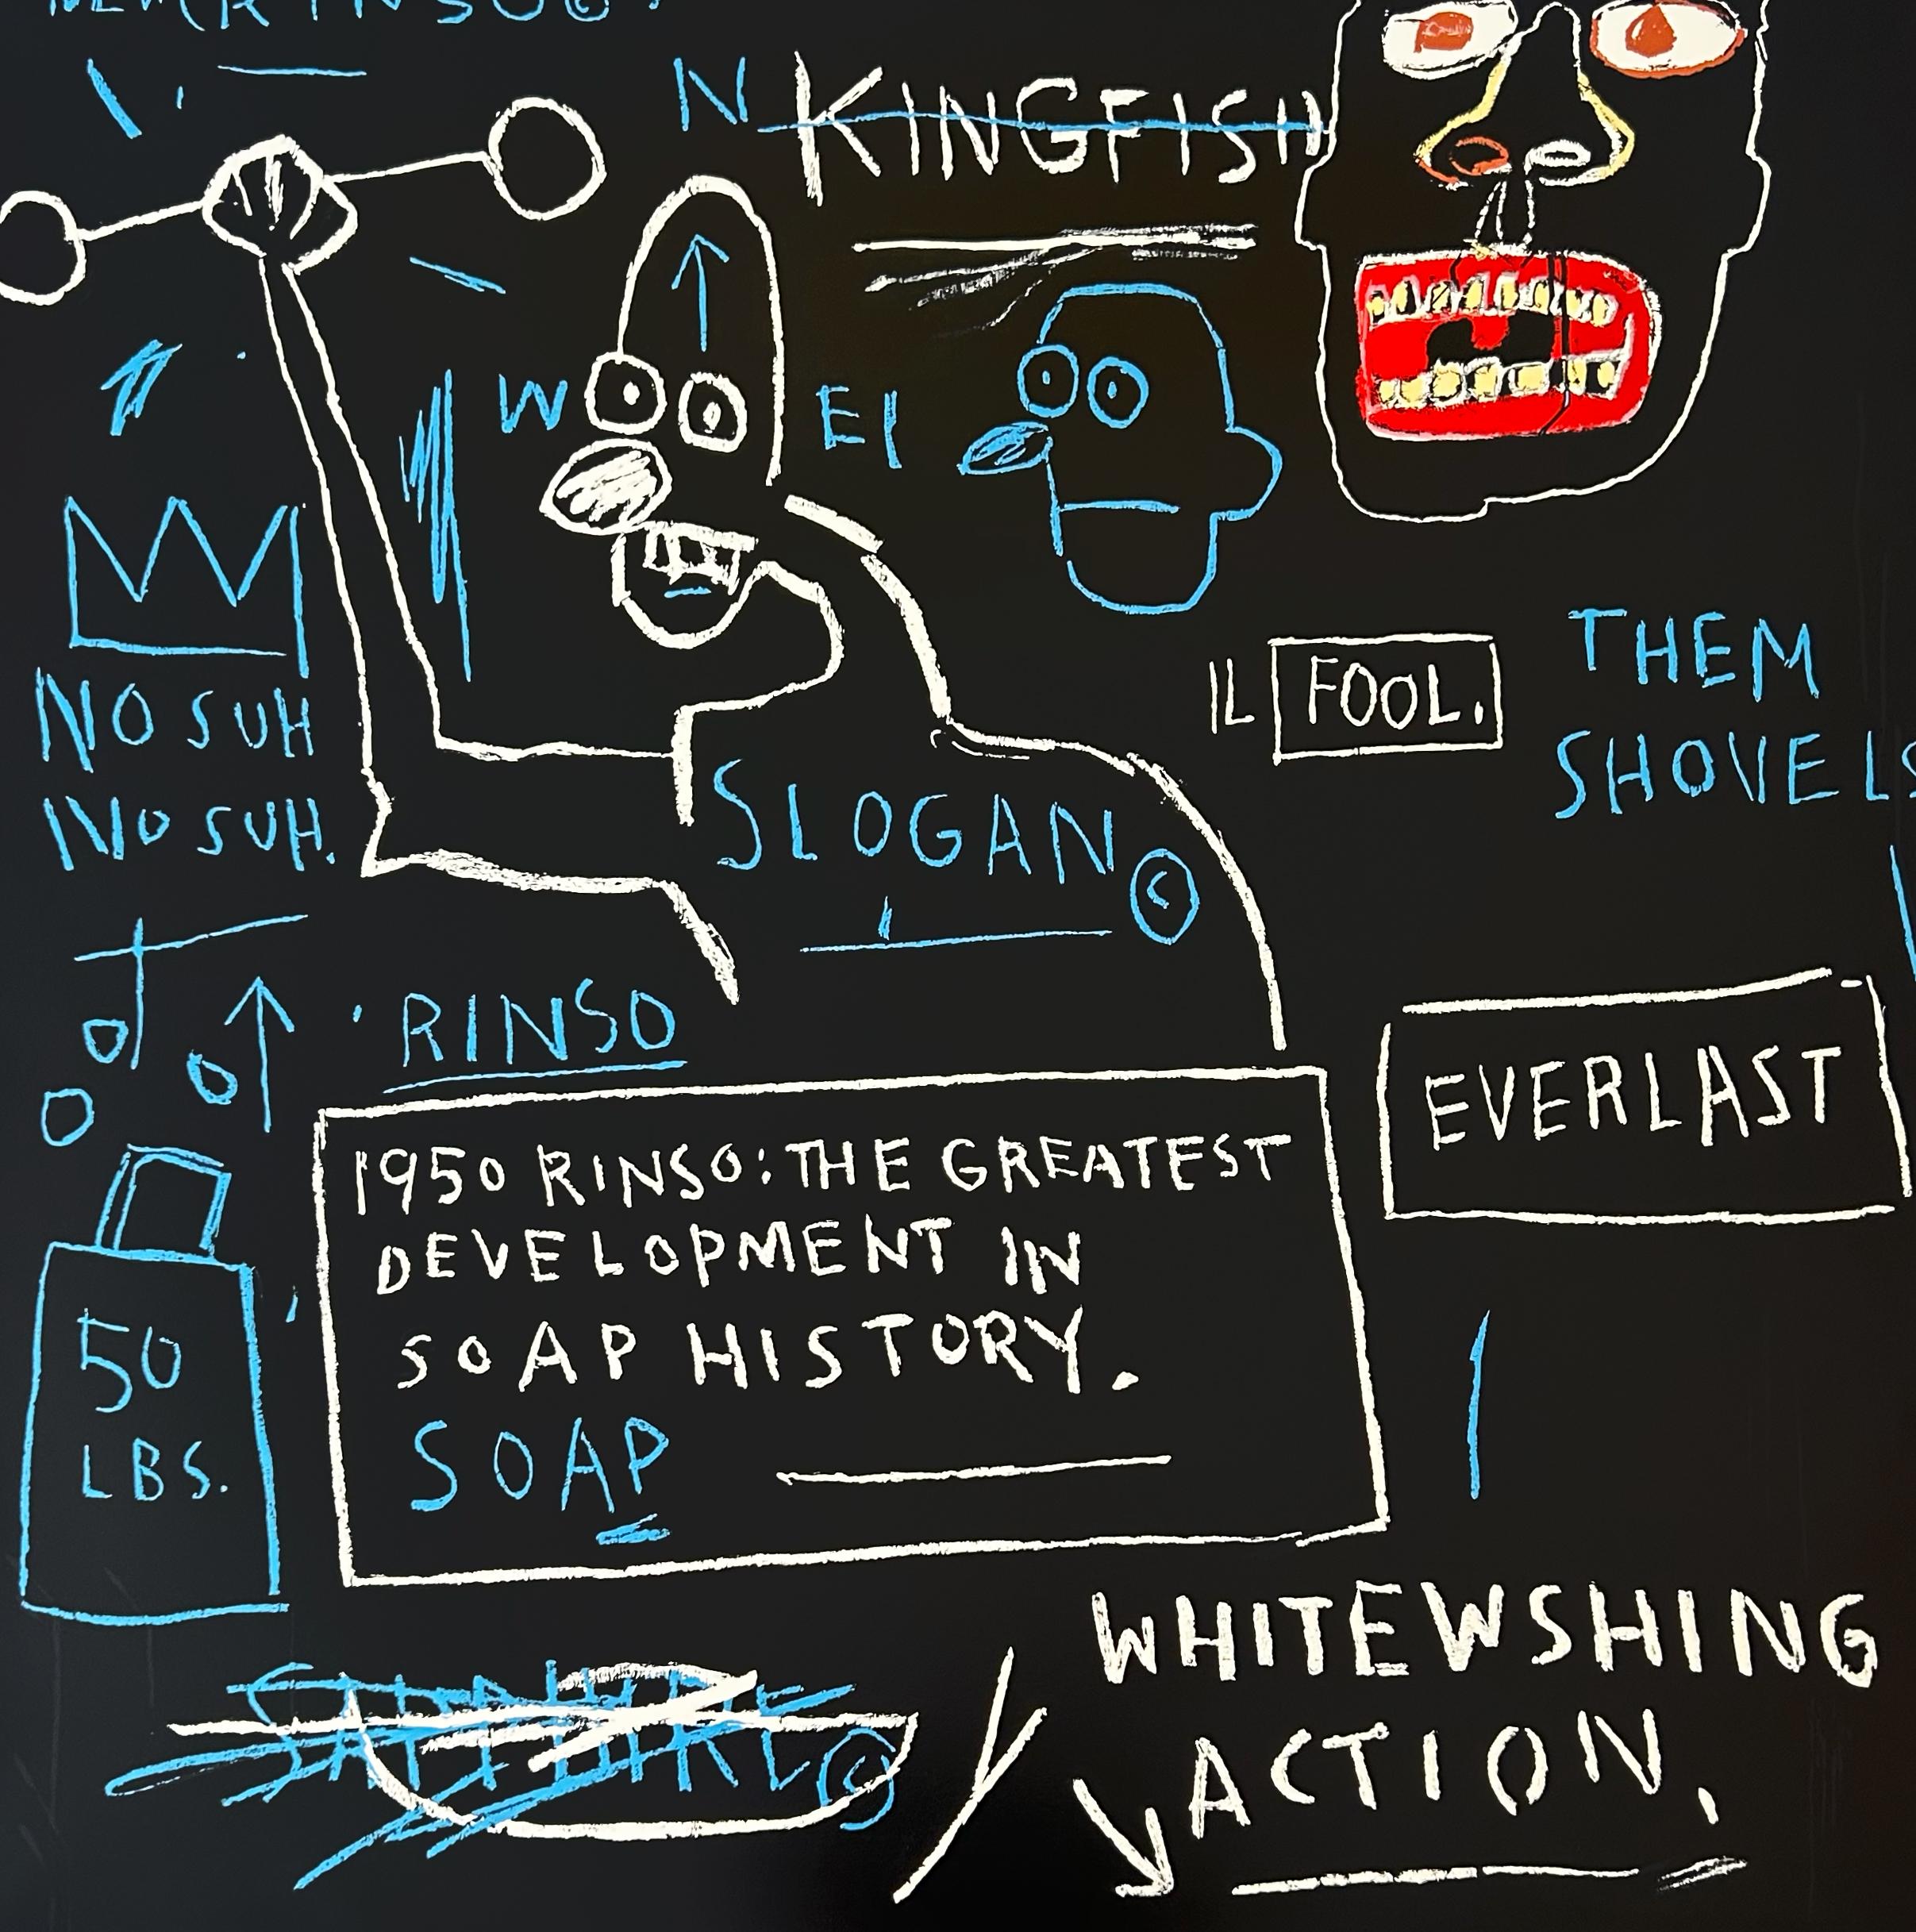 N KINGFISH
W
E
IL FOOL.
THEM
SHOVELS
NO SUH
NO SUH.
SLOGAN ©
RINSO
EVERLAST
1950 RINSO: THE GREATEST
DEVELOPMENT IN
SOAP HISTORY.
SOAP
50
LBS.
SAPPHIRE ©
WHITEWSHING
ACTION.